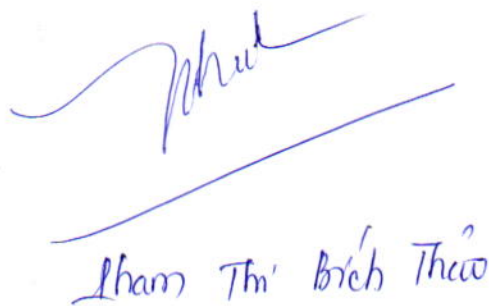 Phạm Thị Bích Thảo